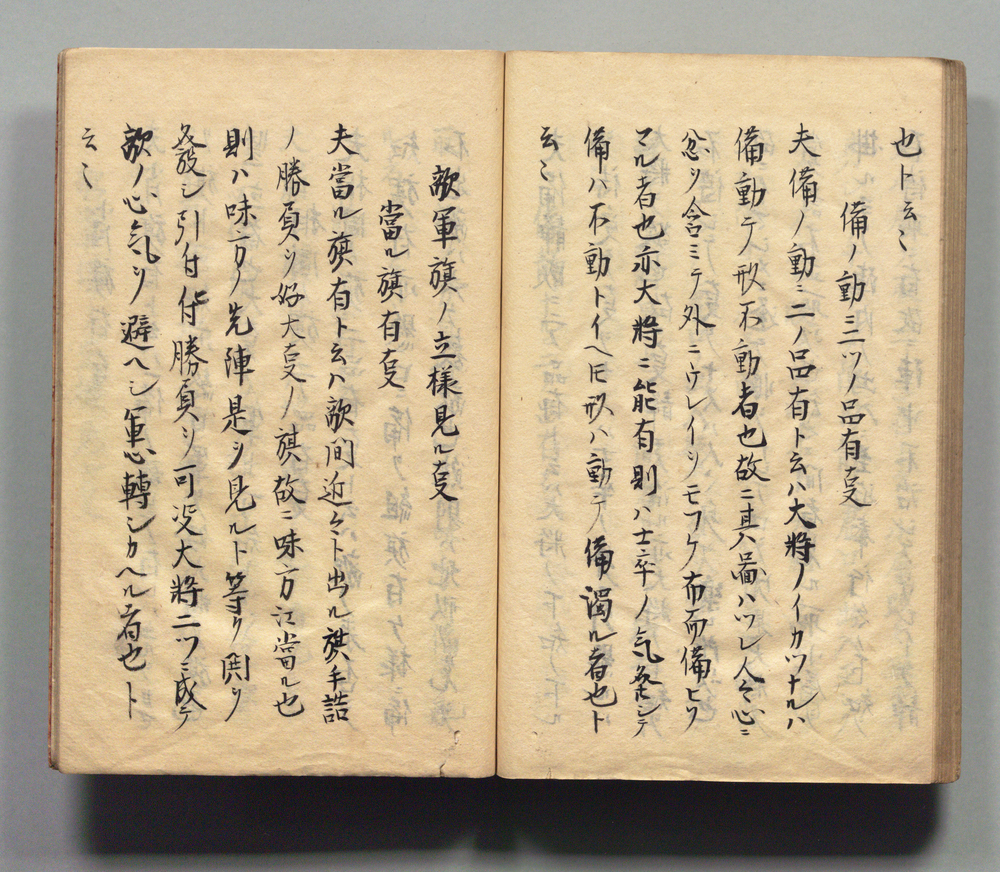 也ト云〻
備ノ動三ツノ品有夏
夫備ノ動ニ二ノ品有ト云ハ大將ノイカツナルハ
備動テ形不動者也故ニ其品ハツレ人〻心ニ
忿ヲ含ミテ外ニウレイヲモフケ布而備ヒリ
マル者也亦大將ニ能有則ハ士卒ノ気発シテ
備ハ不動トイヘ𪜈形ハ動テ備濁ル者也ト
云〻
敵軍旗ノ立樣見ル夏
當ル旗有夏
夫當ル旗有ト云ハ敵間近クト出ル旗手詰
ノ勝負ヲ好大夏ノ旗故ニ味方江當ル也
則ハ味方ノ先陣是ヲ見ルト等ク鬨ヲ
發シ引付仕勝負ヲ可决大將二ツニ成テ
敵ノ心気ヲ避ヘシ軍心轉シカヘル者也ト
云〻